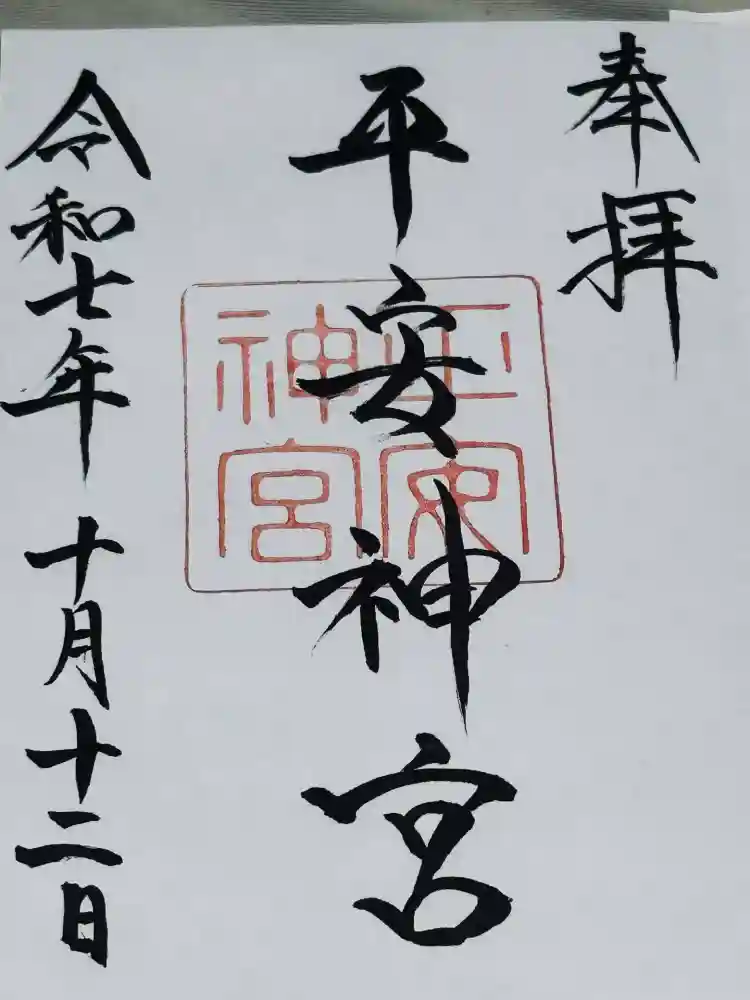 奉拝
平安神宮
平安
神宮
令和七年十月十二日